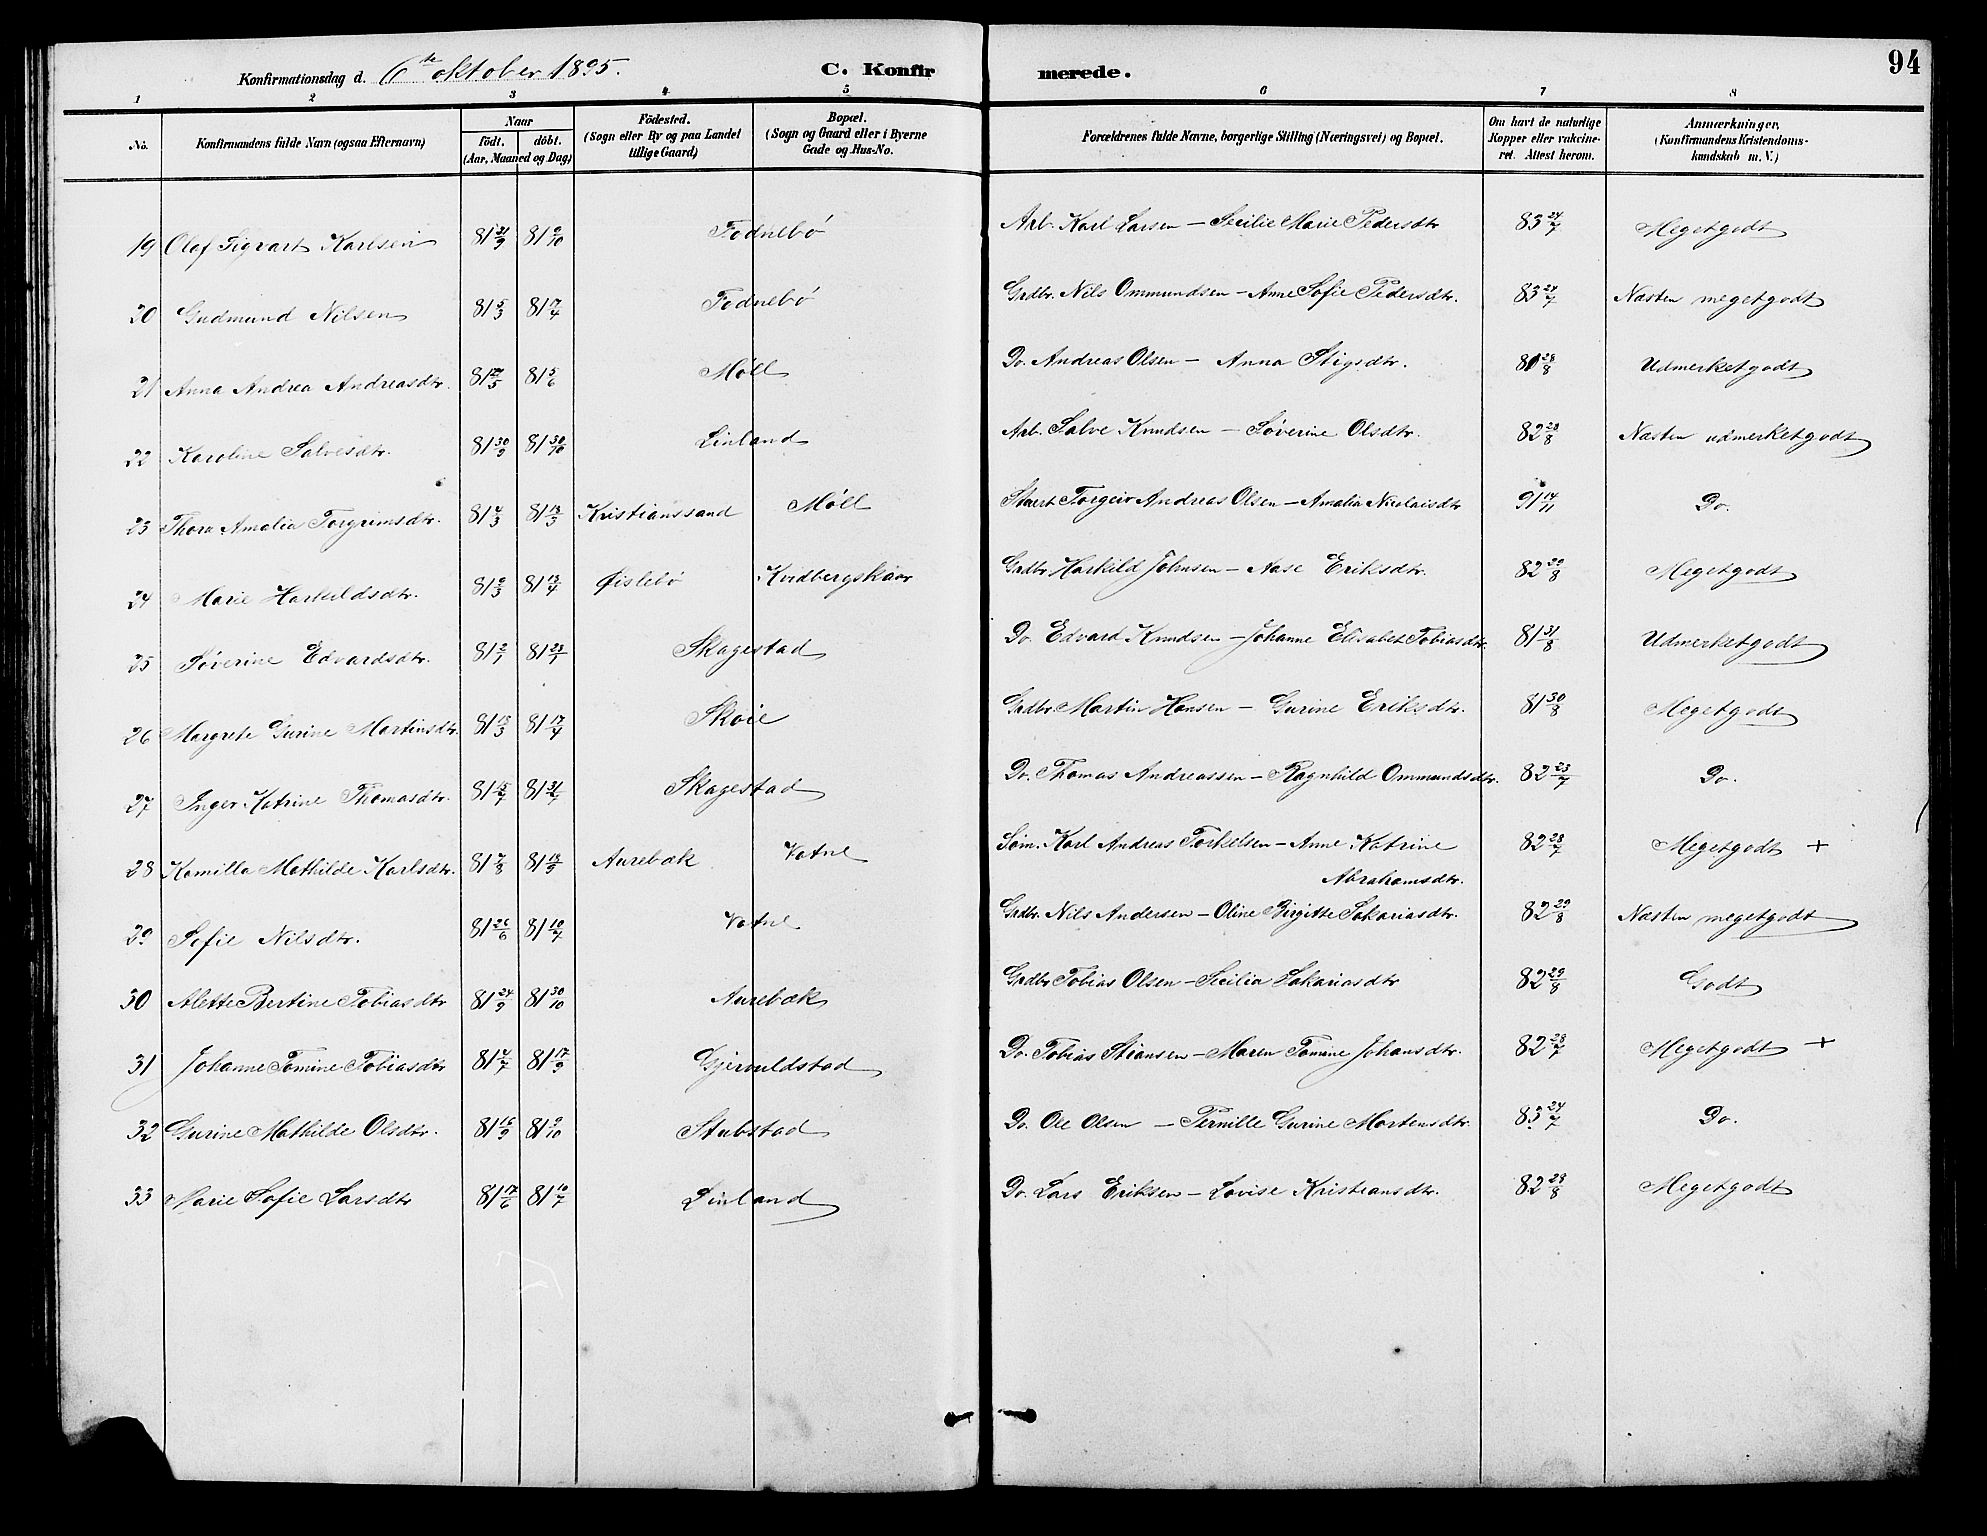 94
Konfirmationsdag d. 6te oktober 1895. C. Konfirmerede.
1 2 3 4 5 6 7 8
No. Konfirmandens fulde Navn (ogsaa Efternavn) Naar födt. döbt. (Aar, Maaned og Dag) Födested. (Sogn eller By og paa Landet tillige Gaard) Bopæl. (Sogn og Gaard eller i Byerne Gade og Hus-No. Forældrenes fulde Navne, borgerlige Stilling (Næringsvei) og Bopæl. Om havt de naturlige Kopper eller vakcineret. Attest herom. Anmærkninger, (Konfirmandens Kristendomskundskab m. V.)
19 Olaf Sigvart Karlsen 81 21/9 81 9/10 Fodnebø Arb. Karl Larsen – Secilie Marie Pedersdtr 83 24/7 Megetgodt
20 Gudmund Nilsen 81 5/3 81 17/4 Fodnebø Grdbr. Nils Ommundsen – Anne Sofie Pedersdtr. 83 24/7 Næsten megetgodt
21 Anna Andrea Andreasdtr. 81 /5 81 5/6 Møll Do. Andreas Olsen – Anna Stigsdtr. 81 28/8 Udmerketgodt
22 Karoline Salvesdtr. 81 30/9 81 30/10 Linland Arb. Salve Knudsen – Søverine Olsdtr. 82 29/8 Næsten udmerketgodt
23 Thora Amalia Torgrimsdtr. 81 4/3 81 13/3 Kristianssand Møll Torgeir Andreas Olsen – Amalia Nicolaisdtr 91 14/11 Do.
24 Marie Harkildsdtr. 81 9/3 81 13/4 Øislebø Kvidbergskaar Grdbr. Harkild Johnsen – Aase Eriksdtr. 82 29/8 Megetgodt
25 Søverine Edvardsdtr. 81 2/1 81 23/1 Skagestad Do. Edvard Knudsen – Johanne Elisabet Tobiasdtr. 81 31/8 Udmerketgodt
26 Margrete Gurine Martinsdtr. 81 13/3 81 17/4 Skøie Grdbr. Martin Hansen – Gurine Eriksdtr. 81 30/8 Megetgodt
27 Inger Katrine Thomasdtr. 81 15/7 81 31/7 Skagestad Do. Thomas Andreassen – Ragnhild Ommundsdtr. 82 23/7 Do.
28 Kamilla Mathilde Karlsdtr. 81 7/8 81 18/9 Aurebæk Vatne Søm. Karl Andreas Torkelsen – Anne Katrine 82 28/7 Megetgodt +
Abrahamsdtr.
29 Sofie Nilsdtr. 81 26/6 81 10/7 Vatne Grdbr. Nils Andersen – Oline Birgitte Sakariasdtr. 82 29/8 Næsten megetgodt
30 Alette Bertine Tobiasdtr 81 24/9 81 30/10 Aurebæk Grdbr. Tobias Olsen – Secilia Sakariasdtr 82 29/8 Godt
31 Johanne Tomine Tobiasdtr 81 4/7 81 17/9 Gjervoldstad Do. Tobias Stiansen – Maren Tomine Johansdtr. 82 28/7 Megetgodt +
32 Gurine Mathilde Olsdtr. 81 16/9 81 9/10 Stubstad Do. Ole Olsen – Pernille Gurine Mortensdtr. 83 24/7 Do.
33 Marie Sofie Larsdtr 81 17/6 81 10/7 Linland Do. Lars Eriksen – Lovise Kristiansdtr. 82 29/8 Megetgodt